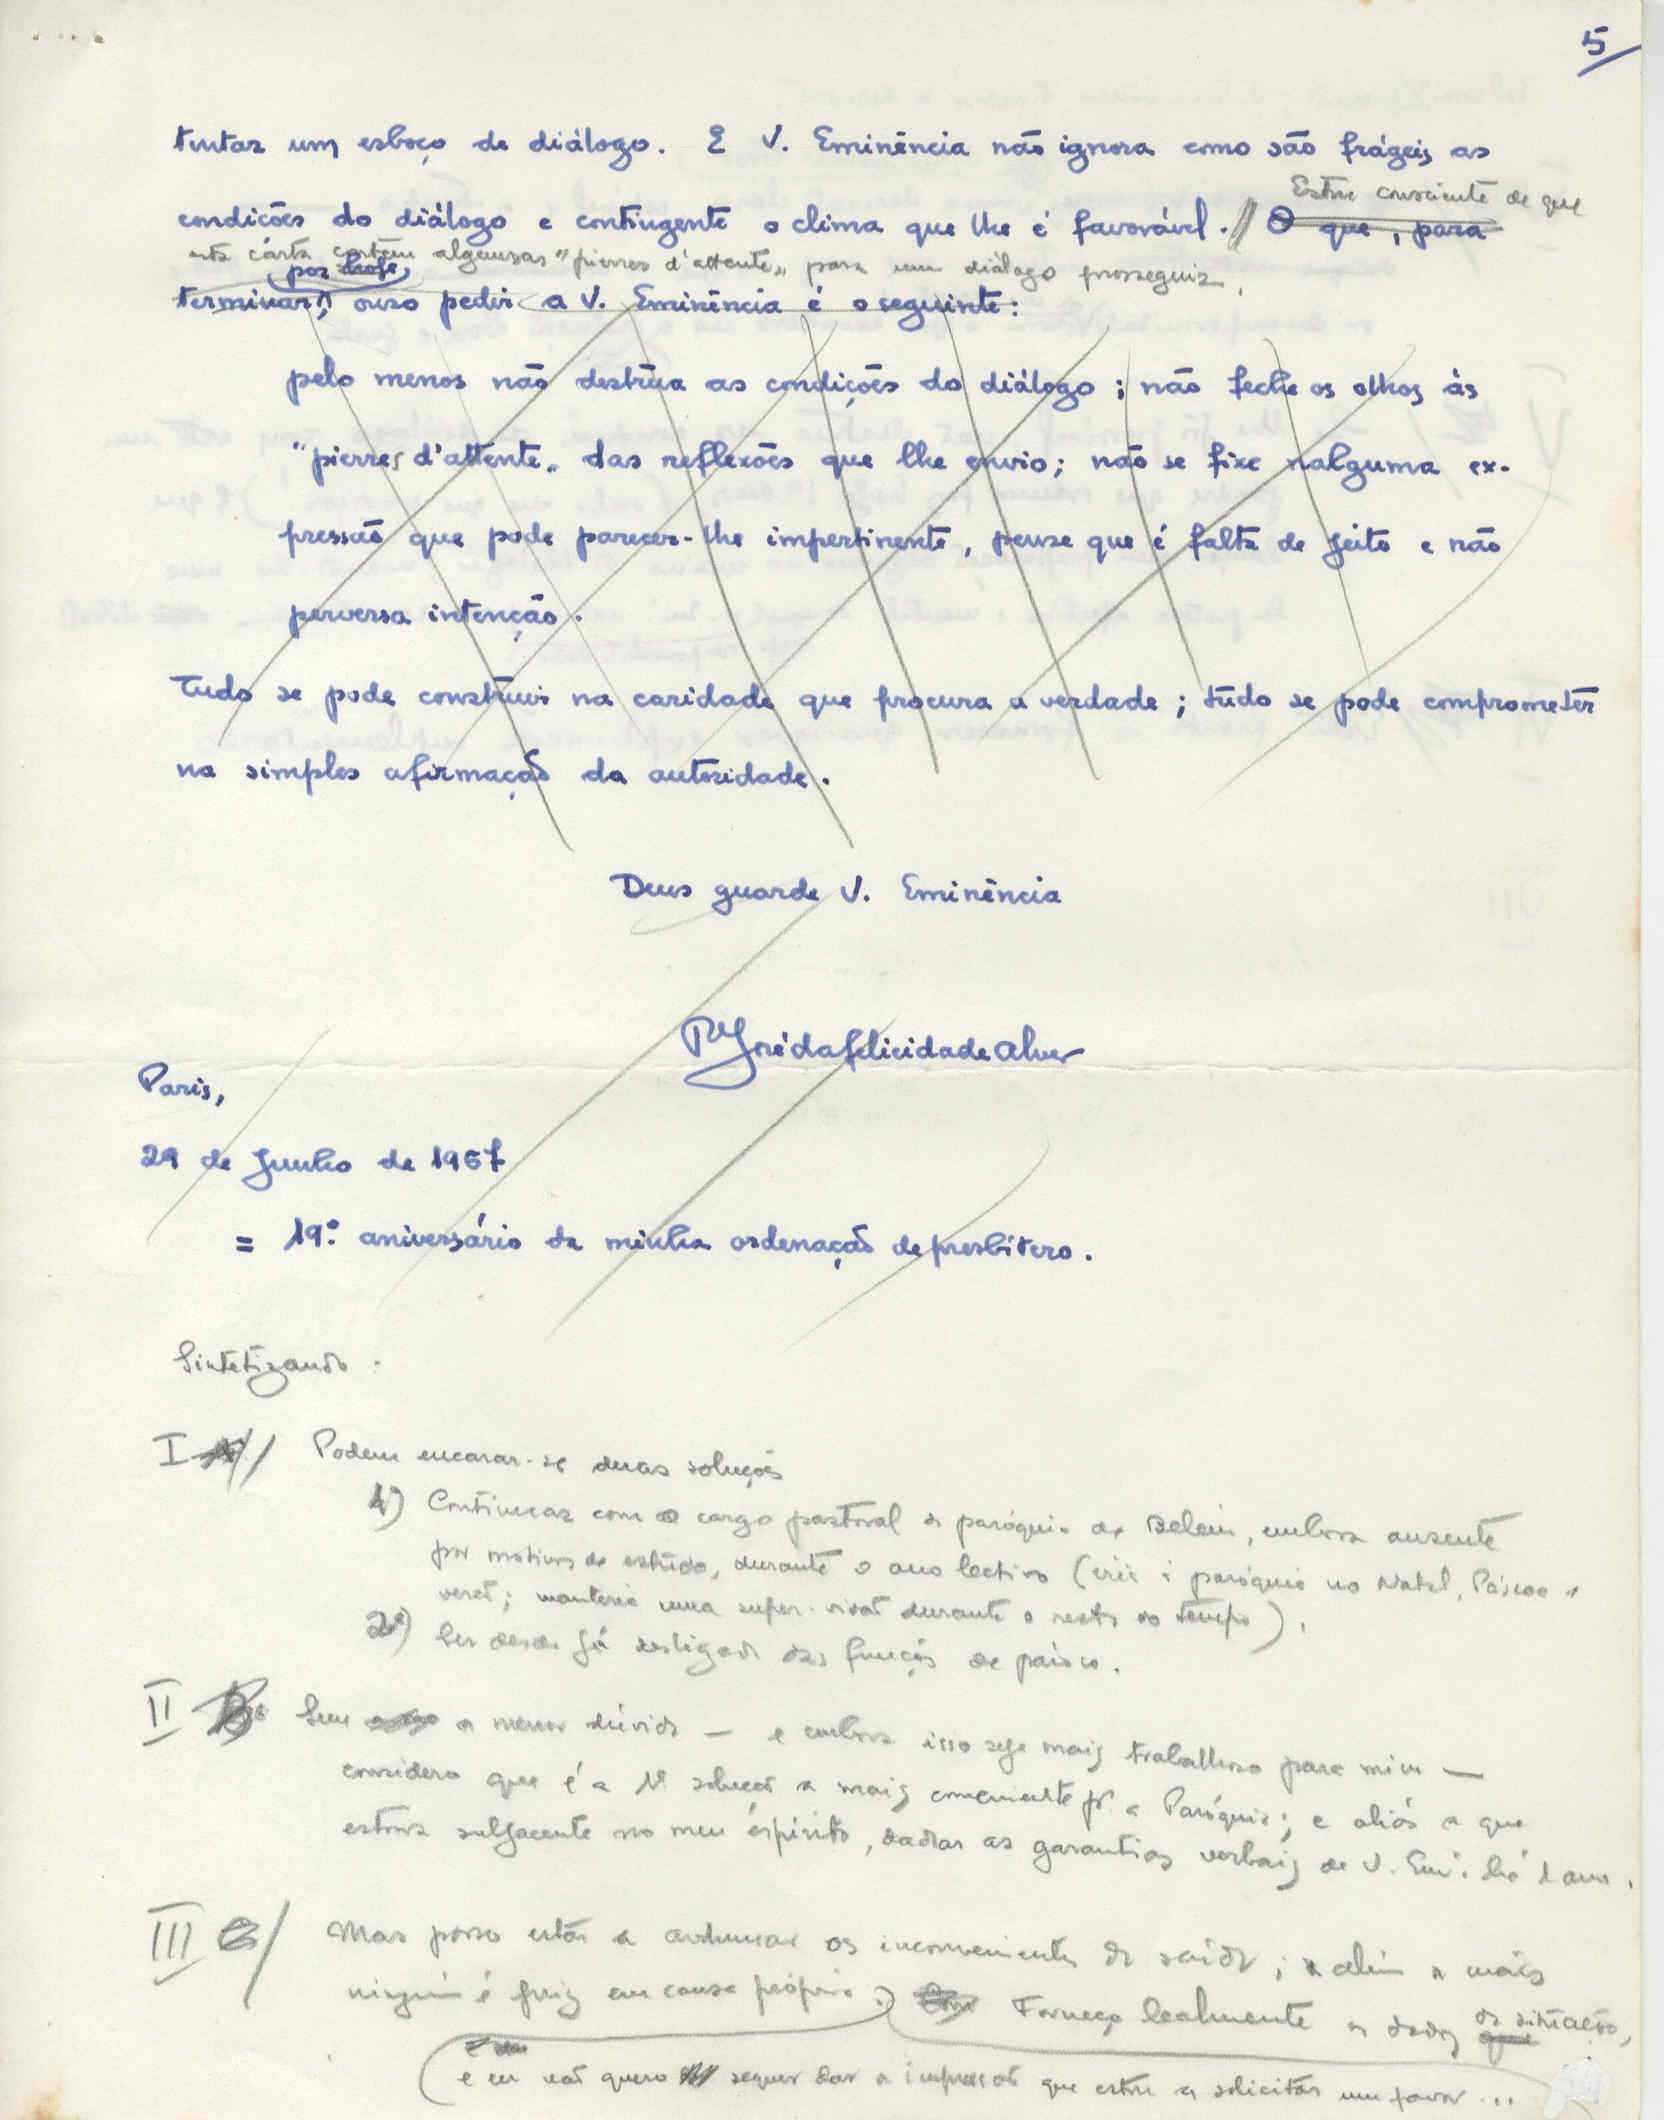 5
tentar um esboço de diálogo. E V. Eminência não ignora como são frágeis as
Estou consciente de que
condições do diálogo e contingente o clima que lhe é favorável. // O que, para
esta carta contém algumas "pierres d'attente" para um diálogo prosseguir.
por hoje,
terminar, ouso pedir a V. Eminência é o seguinte:
pelo menos não destrua as condições do diálogo; não feche os olhos às
"pierres d'attente" das reflexões que lhe envio; não se fixe nalguma ex-
pressão que pode parecer-lhe impertinente, pense que é falta de jeito e não
perversa intenção.
Tudo se pode construir na caridade que procura a verdade; tudo se pode comprometer
na simples afirmação da autoridade.
Deus guarde V. Eminência
Pe José da Felicidade Alves
Paris,
29 de Junho de 1967
= 19.º aniversário da minha ordenação de presbítero.
Sintetizando:
I // Podem encarar-se duas soluções
1ª) Continuar com o cargo pastoral da paróquia de Belém, embora ausente
por motivos de estudo, durante o ano lectivo (viria à paróquia no Natal, Páscoa e
verão; manteria uma super-visão durante o resto do tempo).
2ª) Ser desde já desligado das funções de pároco.
II Sem a menor dúvida — e embora isso seja mais trabalhoso para mim —
considero que é a 1ª solução a mais conveniente pª a Paróquia; e aliás a que
estava subjacente no meu espírito, dadas as garantias verbais de V. Emª. há 1 ano.
III / Mas posso estar a avolumar os inconvenientes da saída; além do mais
ninguém é juiz em causa própria. Forneço lealmente os dados da situação,
e eu não quero sequer dar a impressão que estou a solicitar um favor...